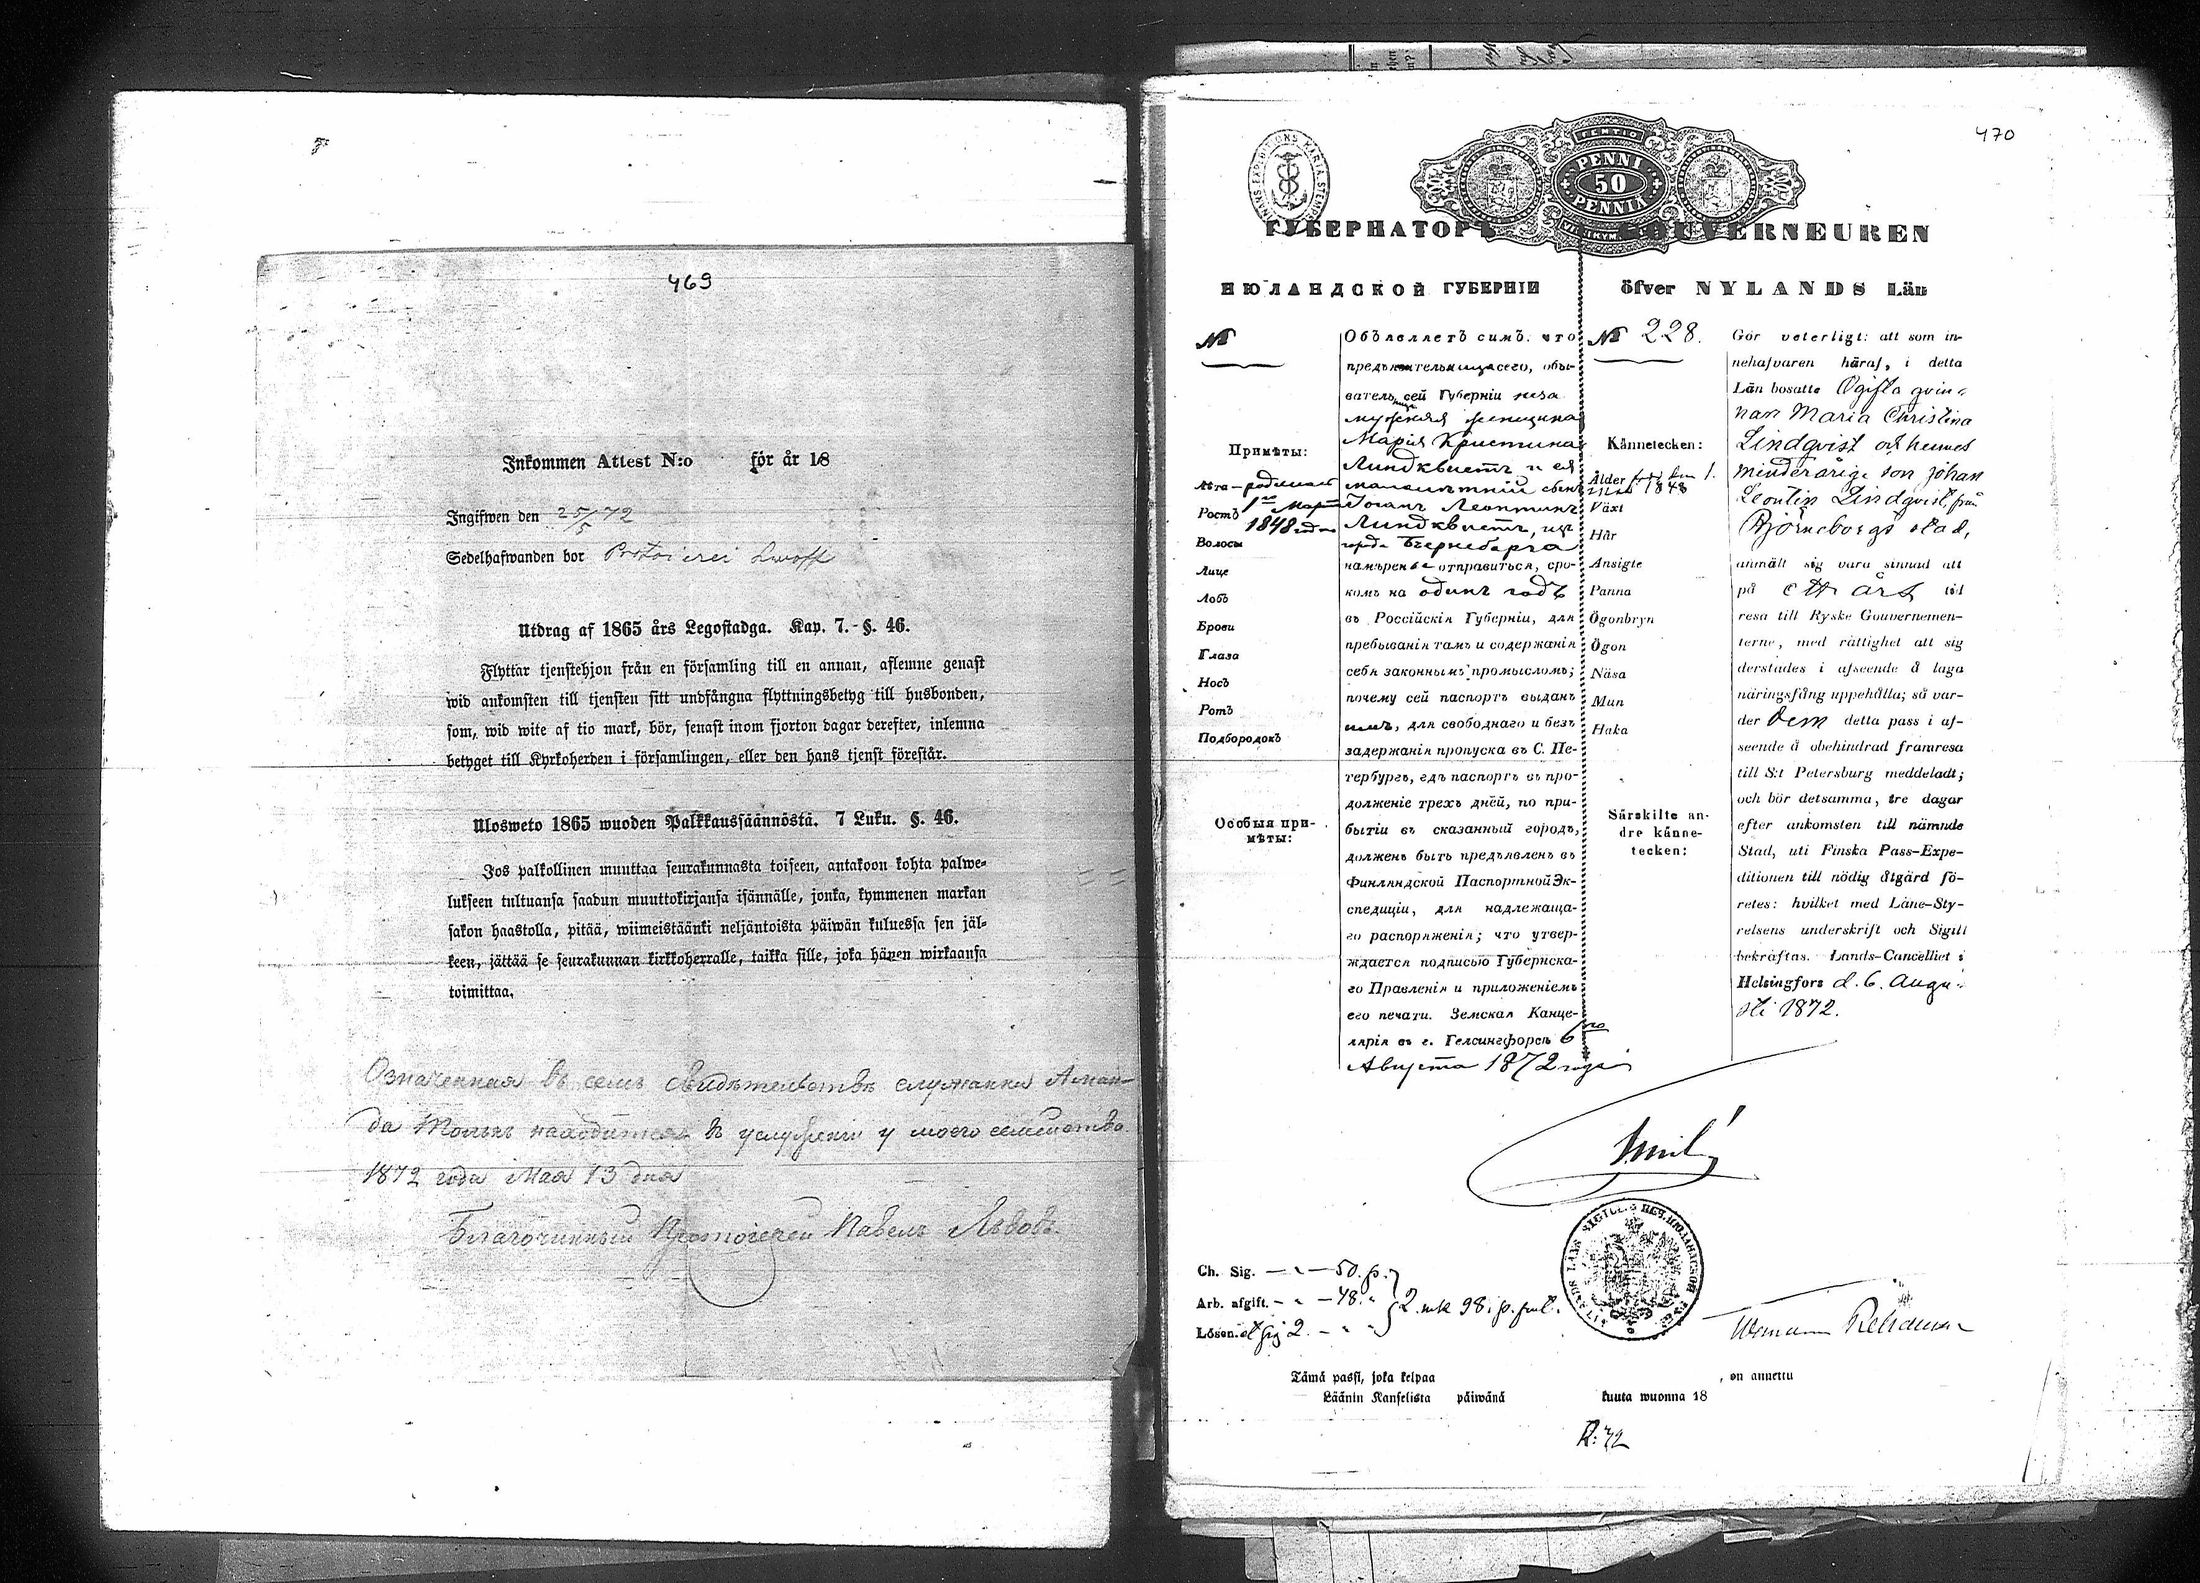 469
Inkommen Attest N:o för år 18
Ingifwen den 25/5 72
Sedelhafwanden bor Protoierei Lwoff
Utdrag af 1865 års Legostadga. Kap. 7. §. 46.
Flyttar tjenstehjon från en församling till en annan, aflemne genast
wid ankomsten till tjensten sitt undfångna flyttningsbetyg till husbonden,
som, wid wite af tio mark, bör, senast inom fjorton dagar derefter, inlemna
betyget till Kyrkoherden i församlingen, eller den hans tjenst förestår.
Ulosweto 1865 wuoden Palkkaussäännöstä. 7 Luku. §. 46.
Jos palkollinen muuttaa seurakunnasta toiseen, antakoon kohta palwe-
lukseen tultuansa saadun muuttokirjansa isännälle, jonka, kymmenen markan
sakon haastolla, pitää, wiimeistäänki neljäntoista päiwän kuluessa sen jäl-
keen, jättää se seurakunnan kirkkoherralle, taikka sille, joka hänen wirkaansa
toimittaa.
Означенная въ семъ свидѣтельствѣ служанка Аман-
да находится въ услуженіи у моего семейства
1872 года Мая 13 дня
Благочинный Протоіерей Павелъ Львовъ
470
FEMTIO
PENNI
50
PENNIÄ
ГУБЕРНАТОРЪ
НЮЛАНДСКОЙ ГУБЕРНІИ
№
Примѣты:
Лѣта – родилась
Ростъ 1го Марта
1848 года
Волосы
Лице
Лобъ
Брови
Глаза
Носъ
Ротъ
Подбородокъ
Особыя при-
мѣты:
Объявляетъ симъ: что
предъявительница сего, обы-
вательница сей Губерніи неза
мужняя женщина
Марія Кристина
Линдквистъ и ея
малолѣтній сынъ
Іоганъ Леонтинъ
Линдквистъ, изъ
города Бьернеборга
намѣрены отправиться, сро-
комъ на одинъ годъ
въ Россійскія Губерніи, для
пребыванія тамъ и содержанія
себя законнымъ промысломъ;
почему сей паспортъ выданъ
имъ, для свободнаго и безъ
задержанія пропуска въ С. Пе-
тербургъ, гдѣ паспортъ въ про-
долженіе трехъ дней, по при-
бытіи въ сказанный городъ,
долженъ быть предъявленъ въ
Финляндской Паспортной Эк-
спедиціи, для надлежаща-
го распоряженія; что утвер-
ждается подписью Губернска-
го Правленія и приложеніемъ
его печати. Земская Канце-
лярія въ г. Гельсингфорсѣ 6го
Августа 1872 года
GOUVERNEUREN
öfver NYLANDS Län
№ 228.
Kännetecken:
Ålder född den 1.
1848
Växt
Hår
Ansigte
Panna
Ögonbryn
Ögon
Näsa
Mun
Haka
Särskilte an-
dre känne-
tecken:
Gör veterligt: att som in-
nehafvaren häraf, i detta
Län bosatte Ogifta qvin-
nan Maria Christina
Lindqvist och hennes
minderårige son Johan
Leontin Lindqvist, från
Björneborgs stad,
anmält sig vara sinnad att
på ett års tid
resa till Ryske Gouvernemen-
terne, med rättighet att sig
derstädes i afseende å laga
näringsfång uppehålla; så var-
der dem detta pass i af-
seende å obehindrad framresa
till S:t Petersburg meddeladt;
och bör detsamma, tre dagar
efter ankomsten till nämnde
Stad, uti Finska Pass-Expe-
ditionen till nödig åtgärd fö-
retes: hvilket med Läne-Sty-
relsens underskrift och Sigill
bekräftas. Lands-Cancelliet i
Helsingfors d. 6. Augu-
sti 1872.
Ch. Sig. — „ — 50. p.
Arb. afgift. – „ – 48. „
Lösen. 2. – „ „
2. mk 98. p.
Tämä passi, joka kelpaa , on annettu
Läänin Kanselista päiwänä kuuta wuonna 18
R: 72